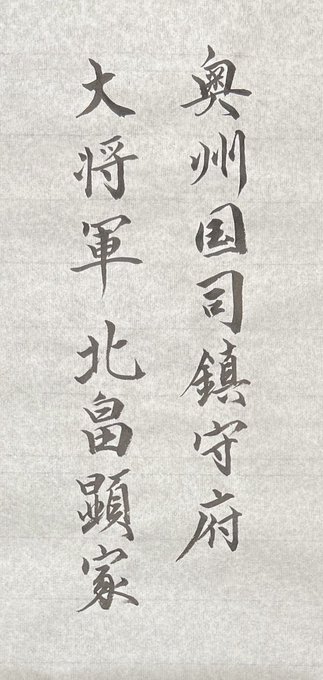 奥州国司鎮守府
大将軍北畠顕家